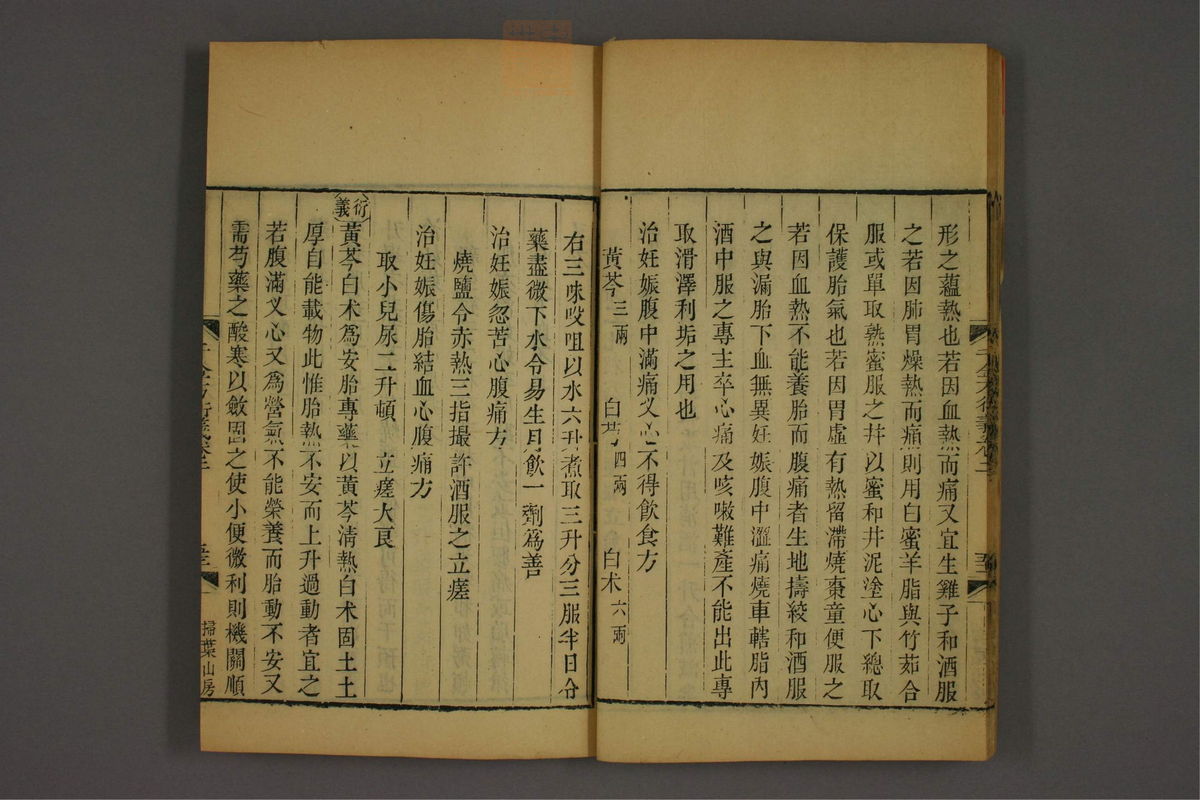 形之蘊熱也若因血熱而痛又宜生雞子和酒服
之若因肺胃燥熱而痛則用白蜜羊脂與竹茹合
服或單取熟蜜服之井以蜜和井泥塗心下總取
保護胎氣也若因胃虛有熱留滯燒棗童便服之
若因血熱不能養胎而腹痛者生地擣絞和酒服
之與漏胎下血無異妊娠腹中𤺋痛燒車轄脂內
酒中服之專主卒心痛及咳嗽難產不能出此專
取滑澤利垢之用也
治妊娠腹中滿痛义心不得飲食方
黃芩三兩 白芍四兩 白朮六兩
右三味㕮咀以水六升煮取三升分三服半日令
藥盡微下水令易生月飲一劑爲善
治妊娠忽苦心腹痛方
燒鹽令赤熱三指撮許酒服之立瘥
治妊娠傷胎結血心腹痛方
取小兒尿二升頓 立瘥大良
衍義
黃芩白朮爲安胎專藥以黃芩清熱白朮固土土
厚自能載物此惟胎熱不安而上升過動者宜之
若腹滿义心又爲營氣不能榮養而胎動不安又
需芍藥之酸寒以斂固之使小便微利則機關順
掃葉山房